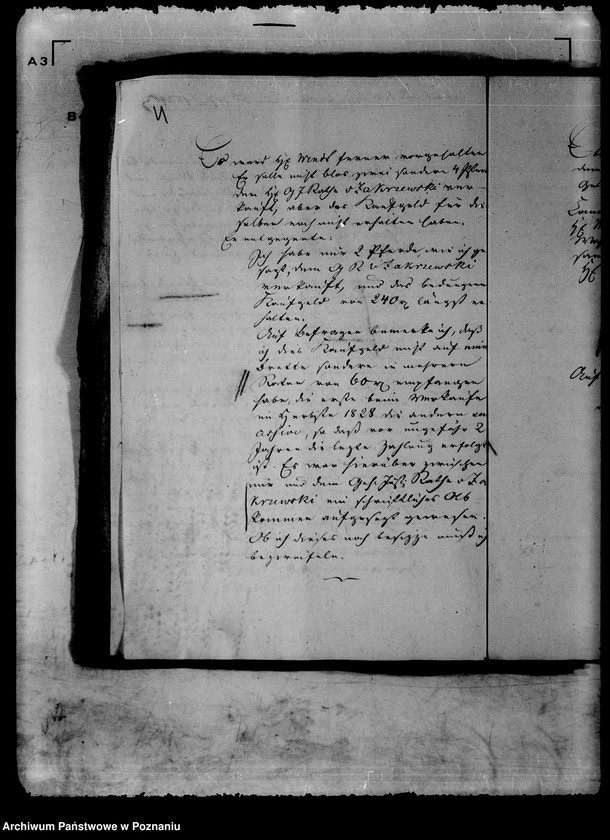 A3
B
Es ward H. Mens ferner vorgehalten
Er solle nicht blos zwei sondern 4 Pferde
dem H. G J Rathe v Zakrzewski ver-
kauft, aber das Kaufgeld für die-
selben noch nicht erhalten haben.
Er entgegnete:
Ich habe nur 2 Pferde, wie ich ge
sagt, dem G R v Zakrzewski
verkauft, und das bedungene
Kaufgeld von 240 längst er
halten.
Auf Befragen bemerke ich, daß
ich dies Kaufgeld nicht auf ein
Brette sondern in mehrern
Raten von 60 empfangen
habe, die erste beim Verkaufe
im Herbste 1828 die andern
so daß vor ungefähr 2
Jahren die letzte Zahlung erfolgt
ist. Es war hierüber zwischen
mir und dem Geh. Just. Rathe v Za
krzewski ein schriftliches Ab
kommen aufgesetzt gewesen.
Ob ich dieses noch besitze muß ich
bezweifeln.
Auf
Archiwum Państwowe w Poznaniu